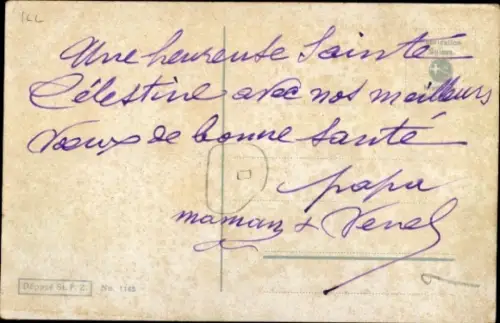 Une heureuse Sainte
Célestine avec nos meilleurs
vœux de bonne santé
papa
maman &
Déposé
No.